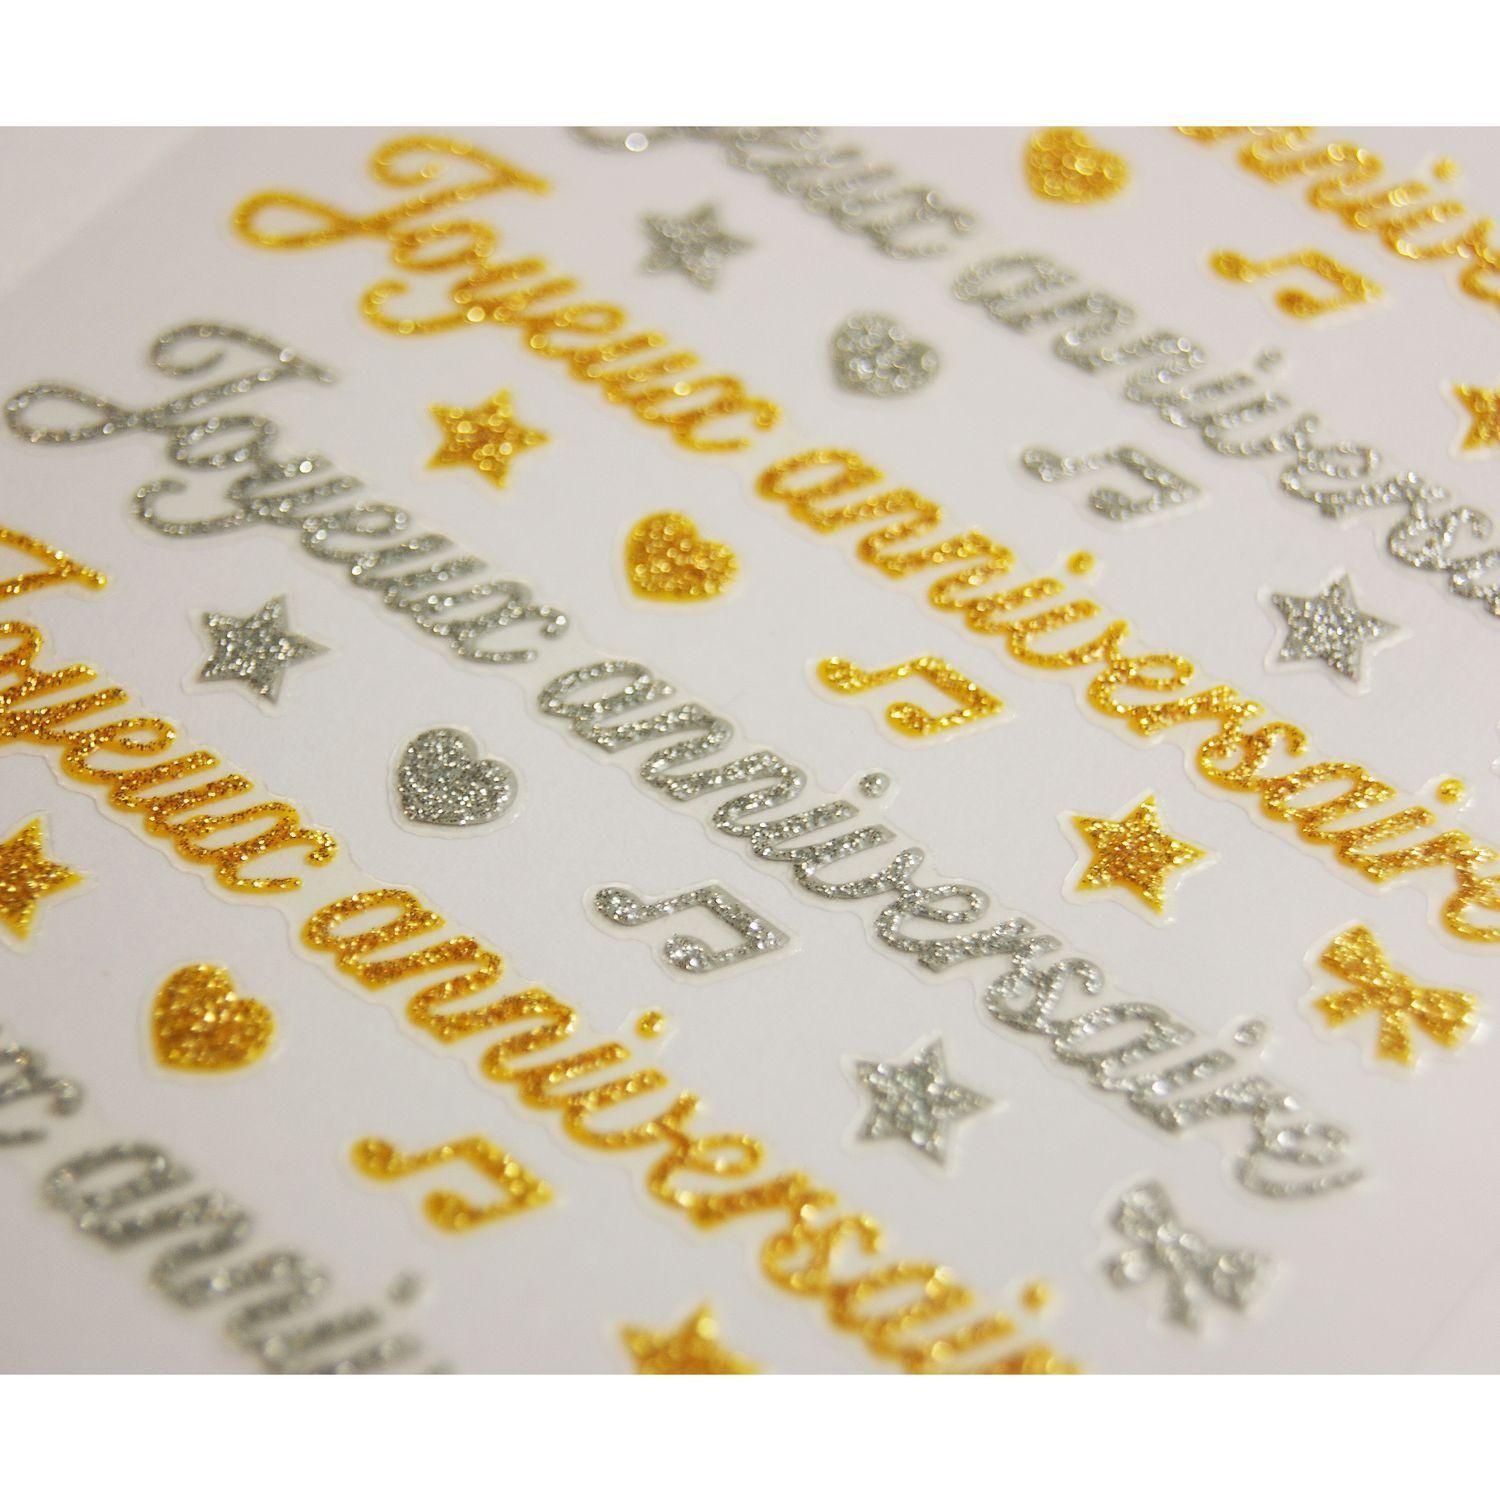 anniversaire
Joyeux anniversaire
Joyeux anniversaire
Joyeux anniversaire
Joyeux anniversaire